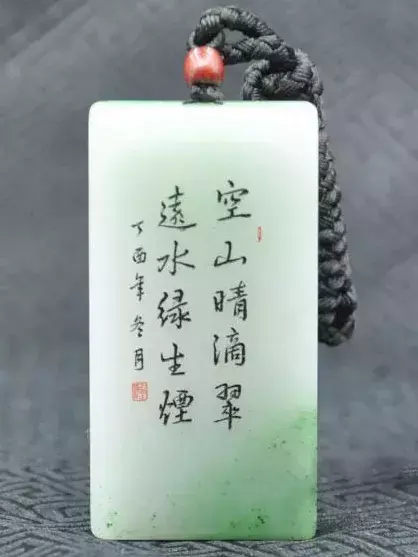 空山晴滴翠
遠水緑生煙
丁酉年冬月